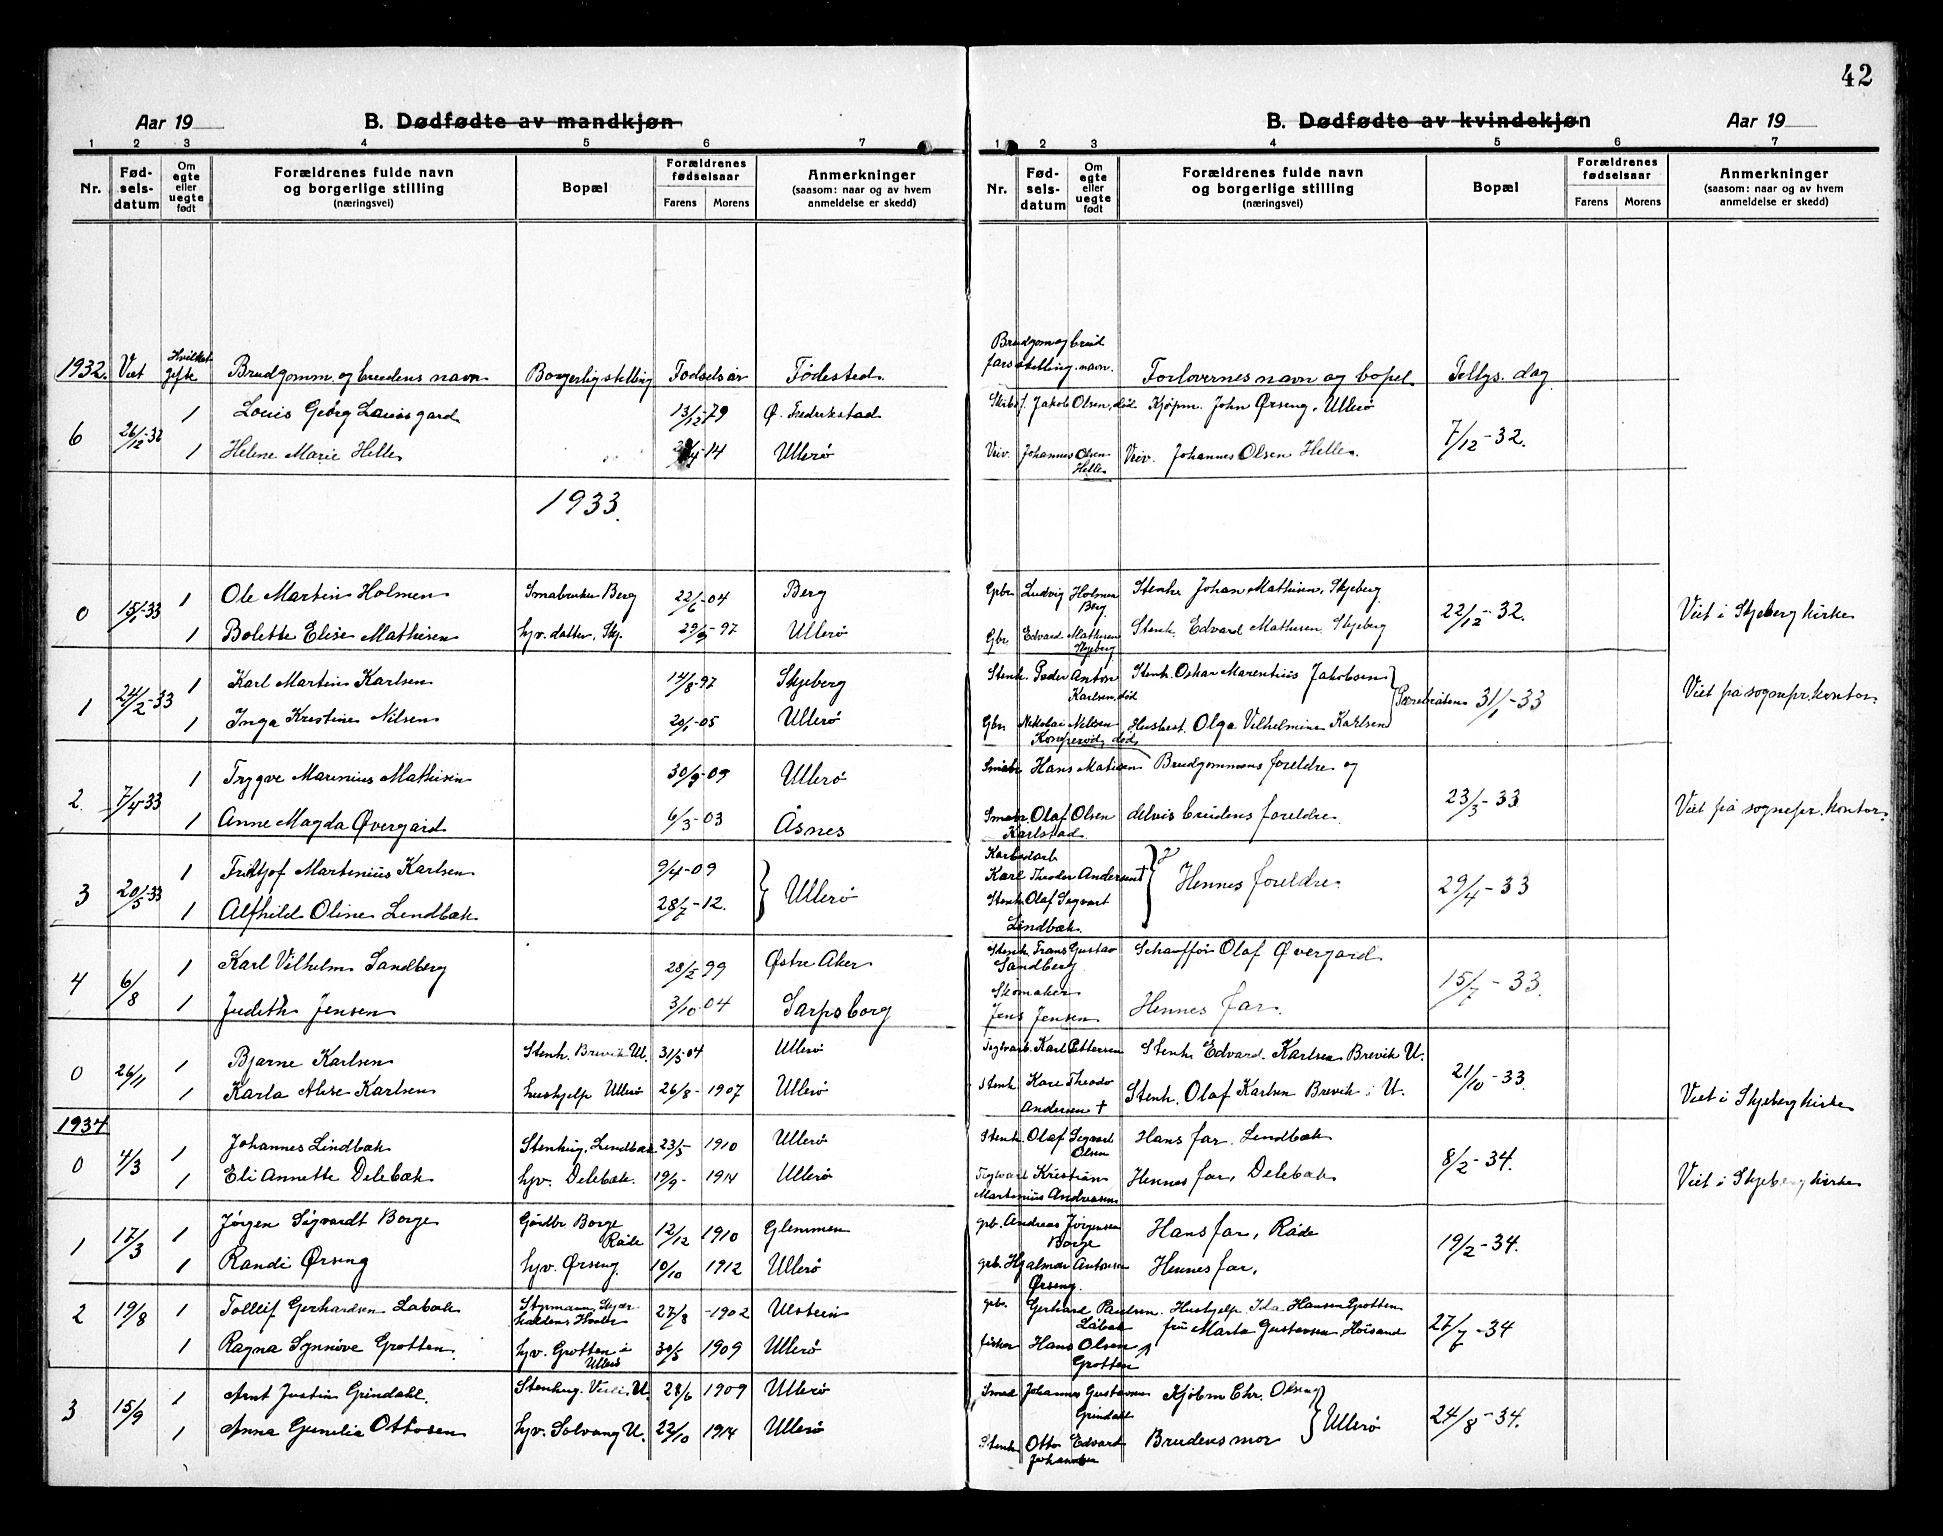 42
Aar 19
B. Dødfødte av mandkjøn
1 2 3 4 5 6 7
Nr.
Fød-
sels-
datum
Om
egte
eller
uegte
født
Forældrenes fulde navn
og borgerlige stilling
(næringsvei)
Bopæl
Forældrenes
fødselsaar
Farens Morens
Anmerkninger
(saasom: naar og av hvem
anmeldelse er skedd)
B. Dødfødte av kvindekjøn
Aar 19
1 2 3 4 5 6 7
Nr.
Fød-
sels-
datum
Om
egte
eller
uegte
født
Forældrenes fulde navn
og borgerlige stilling
(næringsvei)
Bopæl
Forældrenes
fødselsaar
Farens Morens
Anmerkninger
(saasom: naar og av hvem
anmeldelse er skedd)
1932. Viet Hvilket gifte Brudgomm. og brudens navn Borgerlig stilling Fødselsår Fødested. Brudgom og brud
fars stilling. navn. Forlovernes navn og bopel Tellys. dag
6 26/12-32 1 Louis Georg Lauisgard 13/12 79 Ø. Fredrikstad Jakob Olsen, død Kjøpm. John Ørseng, Ullerø 7/12-32.
1 Helene Marie Helle 14 Ullerø Johannes Olsen Helle Johannes Olsen Helle.
1933.
0 15/1-33 1 Ole Martin Holmen Småbruker Berg 22/6-04 Berg Gbr. Ludvig Holmen Berg Stenh. Johan Mathisen, Skjeberg 22/12-32. Viet i Skjeberg kirke
1 Bolette Elise Mathisen hjv. datter, Skj. 29/9-97 Ullerø Gbr. Edvard Mathisen Skjeberg Stenh. Edvard Mathisen. Skjeberg
1 24/2-33 1 Karl Martin Karlsen 14/8-97 Skjeberg Stenh. Peder Anton Karlsen, død Stenh. Oskar Marentius Jakobsen 31/1-33 Viet på sognepr. kontor
1 Inga Kristine Nilsen 20/1-05 Ullerø Gbr. Nikolai Nilsen død. Husbest. Olga Vilhelmine Karlsen
2. 7/4-33 1 Trygve Marinius Mathisen 30/9-09 Ullerø Småbr. Hans Matisen Brudgommens foreldre og 23/3-33 Viet på sognepr. kontor.
1 Anne Magda Øvergård 6/3-03 Åsnes Småbr. Olaf Olsen Karlstad delvis brudens foreldre.
3 20/5-33 1 Fritjof Martinius Karlsen 9/4-09 Ullerø Karl Theodor Andersen † Hennes foreldre. 29/4-33
1 Alfhild Oline Lindbæk 28/7-12. Stenh. Olaf Sigvart Lindbæk.
4 6/8 1 Karl Vilhelm Sandberg 28/2 99 Østre Aker Stenh. Frans Gustav Sandberg Schauffør Olaf Øvergård 15/7-33.
1 Judith Jensen 3/10-04 Sarpsborg Skomaker Jens Jensen Hennes far.
0 26/11 1 Bjarne Karlsen Stenh. Brevik U. 31/5 04 Ullerø Karl Pettersen Stenh. Edvard Karlsen Brevik U. 21/10-33. Viet i Skjeberg kirke
1 Karla Alise Karlsen hushjelp Ullerø 26/8-1907 Ullerø Stenh. Theodor Andersen † Stenh. Olaf Karlsen Brevik i U.
1934
0 4/3 1 Johannes Lindbæk Stenhug. Lindbæk 23/5 1910 Ullerø Stenh. Olaf Sigvart Olsen Hans far. Lindbæk 8/2-34. Viet i Skjeberg kirke
1 Eli Annette Delebæk hjv. Delebæk. 19/9- 1914 Ullerø Kristian Martinius Andresen Hennes far, Delebæk
1 17/3 1 Jørgen Sigvardt Borge Gårdbr Borge Råde 12/12 1910 Glemmen gbr. Andreas Jørgensen Borge Hans far, Råde 19/2-34.
1 Randi Ørseng hjv. Ørseng. 10/10 1912 Ullerø gbr. Hjalmar Antonsen Ørseng. Hennes far,
2 19/8 1 Tolleif Gerhardsen Labæk Styrmann, Skjærhalden Hvaler 27/8-1902 Ulstein gbr. Gerhard Paulsen Låbæk Hushjelp Ida Hansen Grotten 27/7-34
1 Ragna Synnøve Grotten. hjv. Grotten i Ullerø 30/5 1909 Ullerø fisker Hans Olsen Grotten fru Marta Gustavsen, Høisand
3 15/9 1 Arnt Justin Grindahl. Stenhug. U. 28/6 1909 Ullerø Johannes Gustavsen Grindahl Kjøbm Chr. Olsen Ullerø 24/8-34.
1 Anna Gunelia Ottosen hjv. Solvang U. 22/10 1914 Ullerø Stenh Otto Edvard Johansen Brudens mor